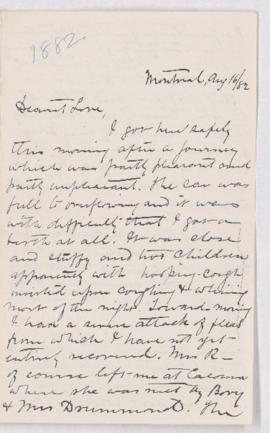 1882
Montreal, Aug 16/82
Dearest Love,
I got here safely
this morning after a journey
which was partly pleasant and
partly unpleasant. The car was
full to overflowing and it was
with difficulty that I got a
berth at all. It was close
and stuffy and two children
apparently with hooping-cough
insisted upon coughing & whining
most of the night. Towards morning
I had a severe attack of fleas
from which I have not yet
entirely recovered. Mrs R-
of course left me at Cacouna
where she was met by
& Mrs Drummond. The